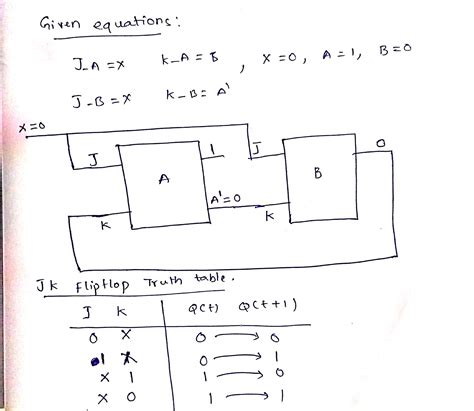 Given equations:
J_A = x K_A = B , x = 0, A = 1, B = 0
J_B = x K_B = A'
x = 0
J A 1 J B 0
K A' = 0 K
Jk flipflop Truth table.
J K Q(t) Q(t+1)
0 X 0 → 0
1 X 0 → 1
X 1 1 → 0
X 0 1 → 1